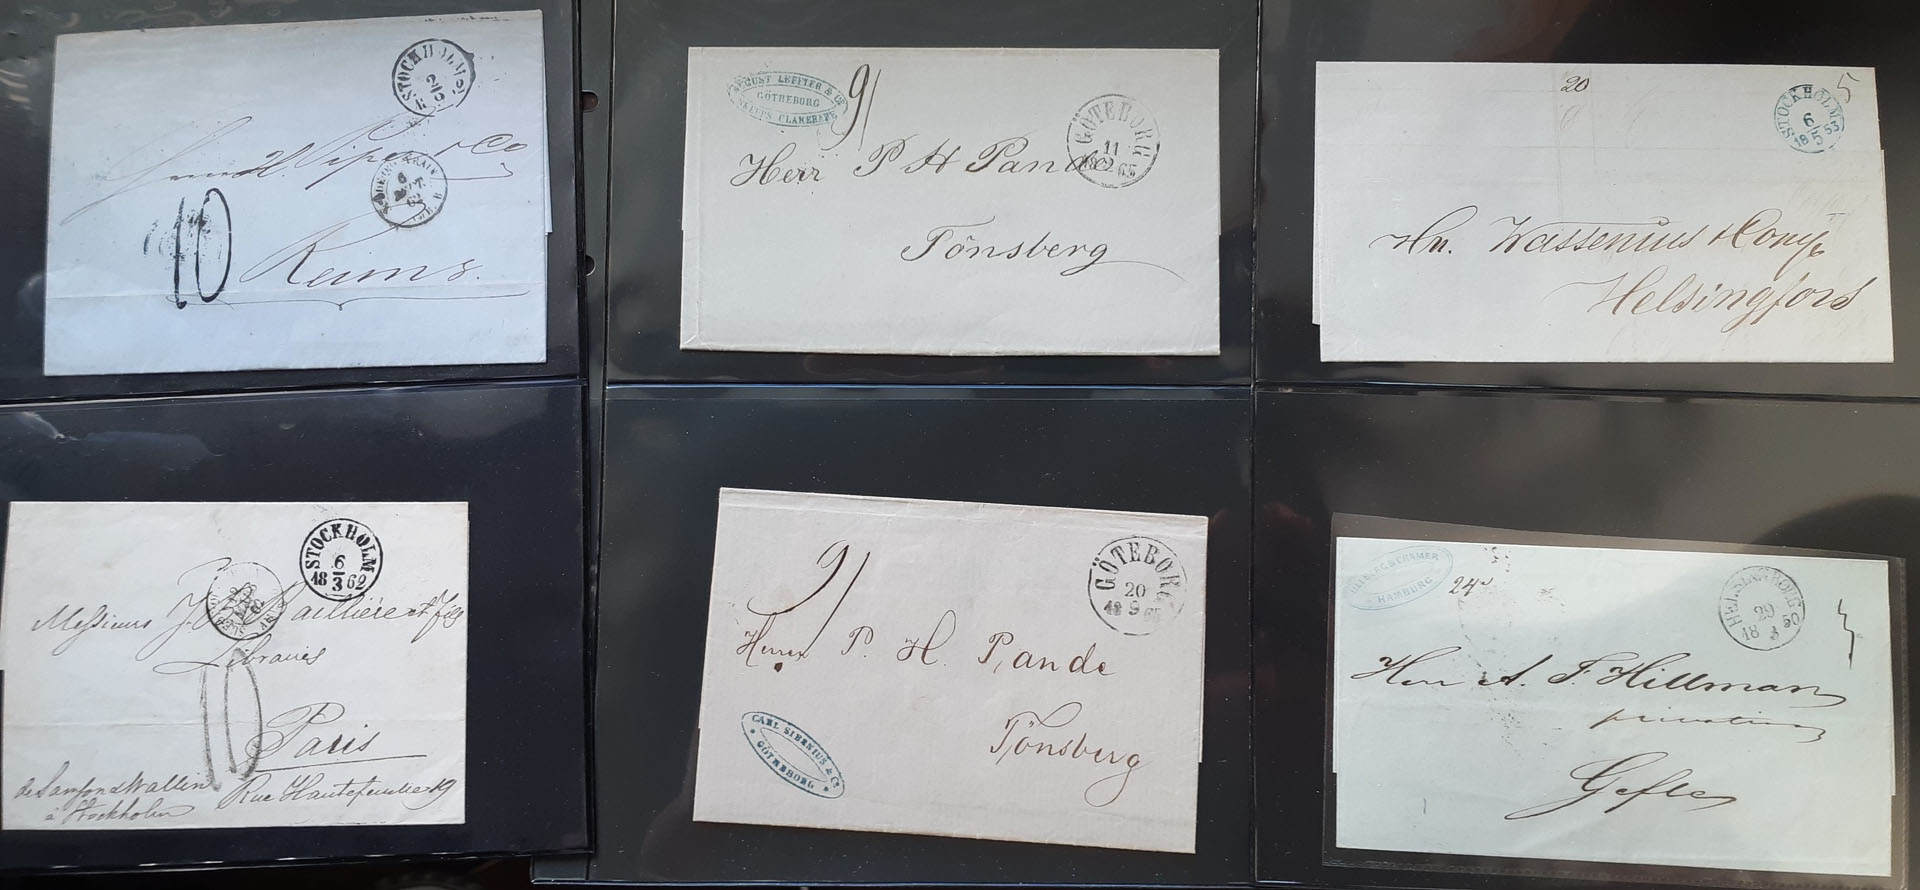 STOCKHOLM
2
5
& Co
6
10
Reims.
AUGUST LEFFLER & Co
GÖTHEBORG
9/
GÖTEBORG
11
18 2 65
Herr P H Pande
Tönsberg
20
5
STOCKHOLM
6
18 5 53
Hn. Wassenius & Comp
Helsingfors
STOCKHOLM
6
18 3 62
Messieurs J. Baillière et fils
Libraires
10
Paris
de Samson & Wallin
Rue Hautefeuille 19
à Stockholm
9/
GÖTEBORG
20
18 9 65
Herren P. H. Pande
CARL SIBENIUS & Co
GÖTHEBORG
Tönsberg
HAMBURG
24
HELSINGBORG
29
18 3 50
Herr A. F. Hillman
Gefle